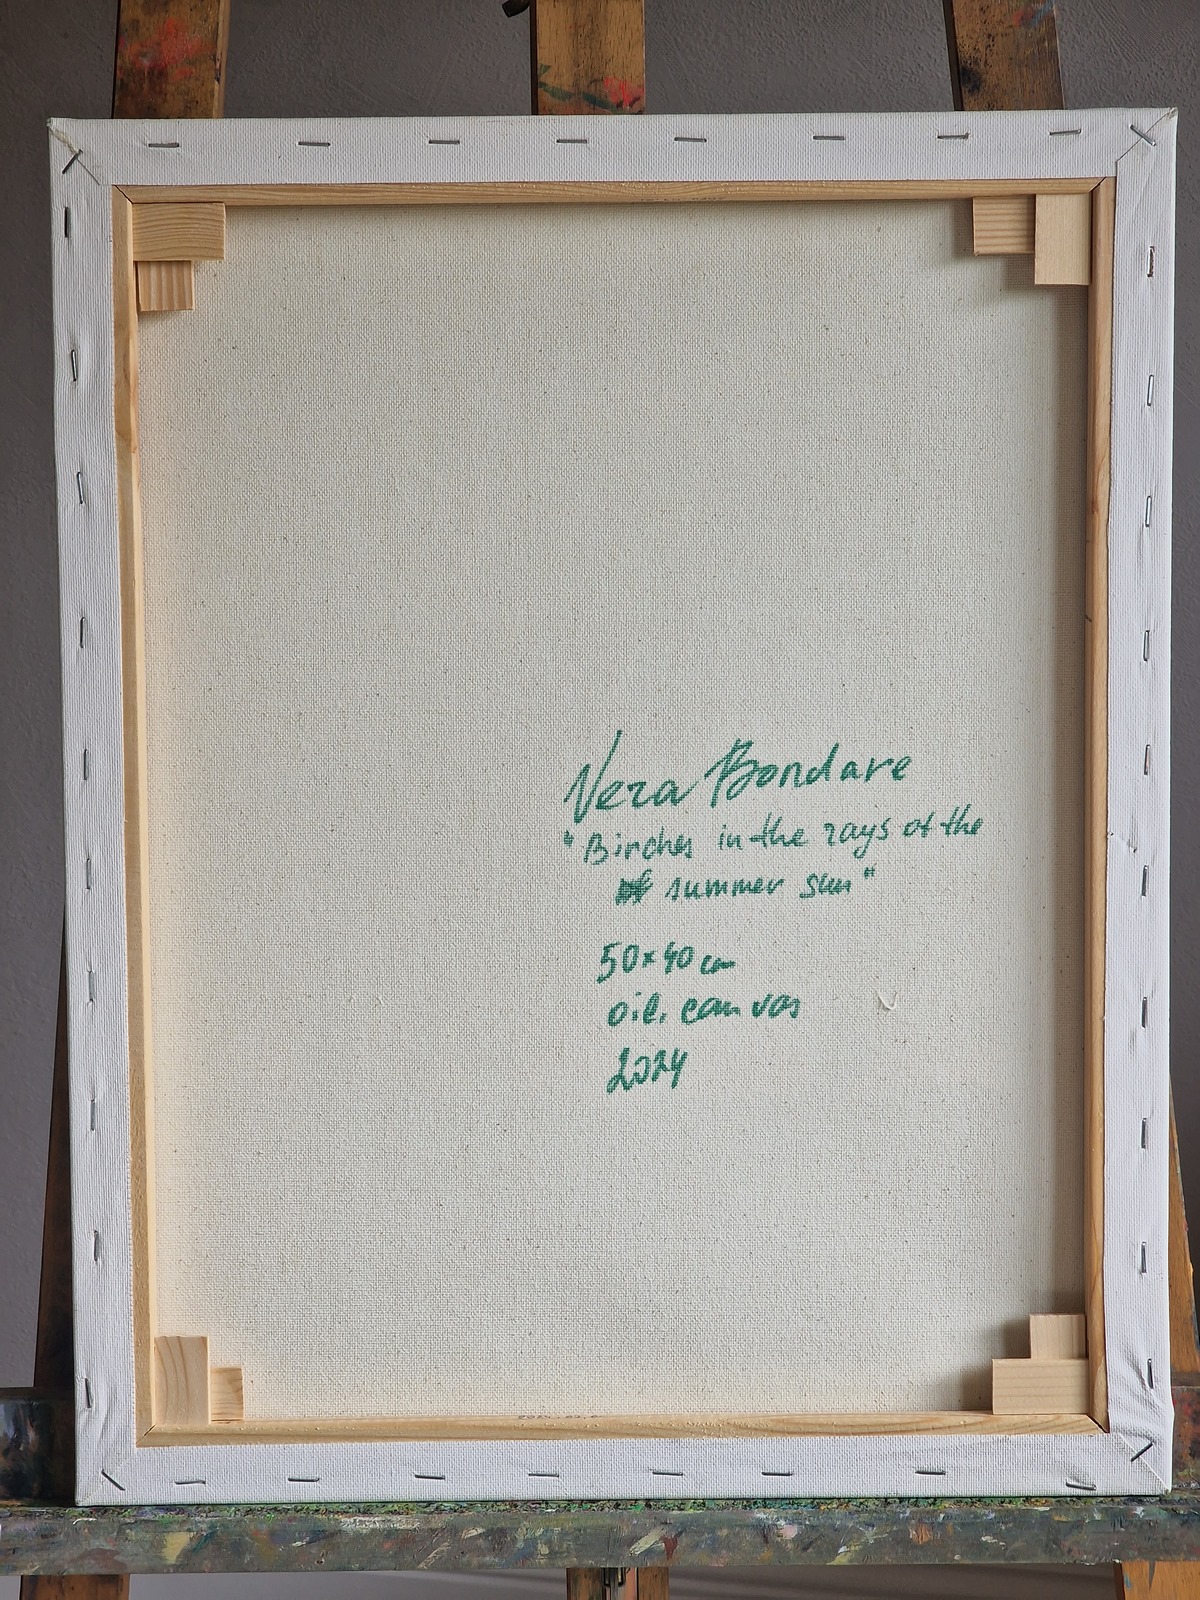 Vera Bondare
"Birches in the rays of the
summer sun"
50×40 cm
oil, canvas
2024